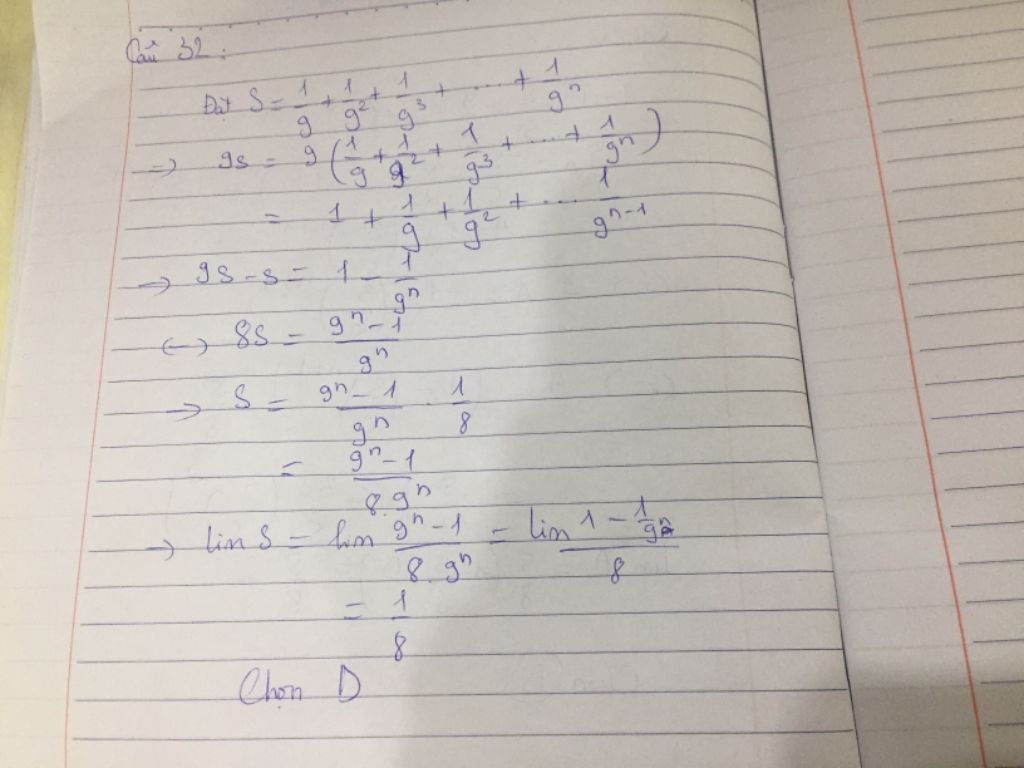 Câu 32:
Đặt S = 1/9 + 1/9² + 1/9³ + ... + 1/9ⁿ
=> 9S = 9(1/9 + 1/9² + 1/9³ + ... + 1/9ⁿ)
= 1 + 1/9 + 1/9² + ... 1/9ⁿ⁻¹
→ 9S - S = 1 - 1/9ⁿ
<-> 8S = (9ⁿ - 1)/9ⁿ
→ S = (9ⁿ - 1)/9ⁿ . 1/8
= (9ⁿ - 1)/(8.9ⁿ)
→ lin S = lin (9ⁿ - 1)/(8.9ⁿ) = lin (1 - 1/9ⁿ)/8
= 1/8
Chọn D